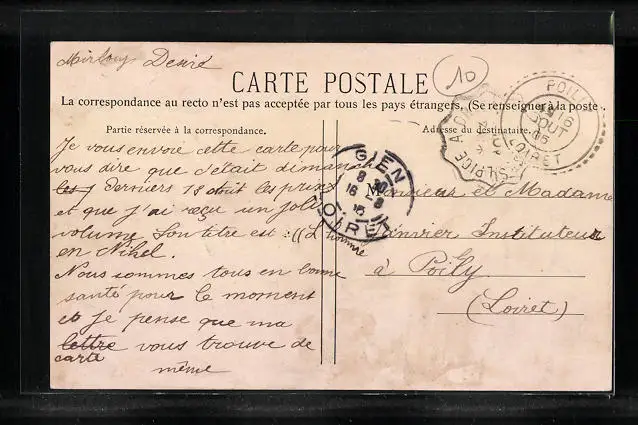 Desiré
10
CARTE POSTALE
La correspondance au recto n'est pas acceptée par tous les pays étrangers. (Se renseigner à la poste
Partie réservée à la correspondance.
Je vous envoie cette carte pour
vous dire que c'était dimanche
les derniers 18 aout les prix
et que j'ai reçu un joli
volume Son titre est : ((L'homme
en Nikel.
Nous sommes tous en bonne
santé pour le moment
et je pense que ma
lettre vous trouve de
carte
même
GIEN
LOIRET
POILLY
16
AOUT
LOIRET
Adresse du destinataire.
Monsieur et Madame
Janvier Instituteur
à Poilly
(Loiret)